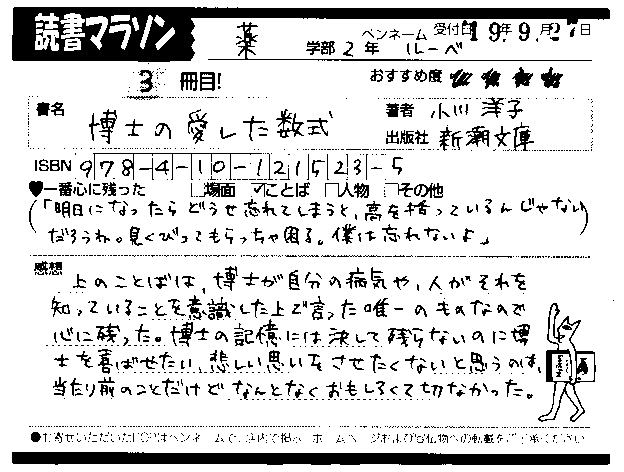 読書マラソン
薬 学部 2 年 ペンネーム ルーベ 受付日 19年9月27日
3 冊目! おすすめ度
書名 博士の愛した数式
著者 小川 洋子
出版社 新潮文庫
ISBN 978-4-10-121523-5
♥一番心に残った □場面 ☑ことば □人物 □その他
(「明日になったらどうせ忘れてしまうと、高を括っているんじゃない
だろうね。見くびってもらっちゃ困る。僕は忘れないよ」)
感想
上のことばは、博士が自分の病気や、人がそれを
知っていることを意識した上で言った唯一のものなので
心に残った。博士の記憶には決して残らないのに博
士を喜ばせたい、悲しい思いをさせたくないと思うのは、
当たり前のことだけどなんとなくおもしろくて切なかった。
●お寄せいただいたPOPはペンネームで、店内で掲示 ホームページおよび宣伝物への転載をご了承ください